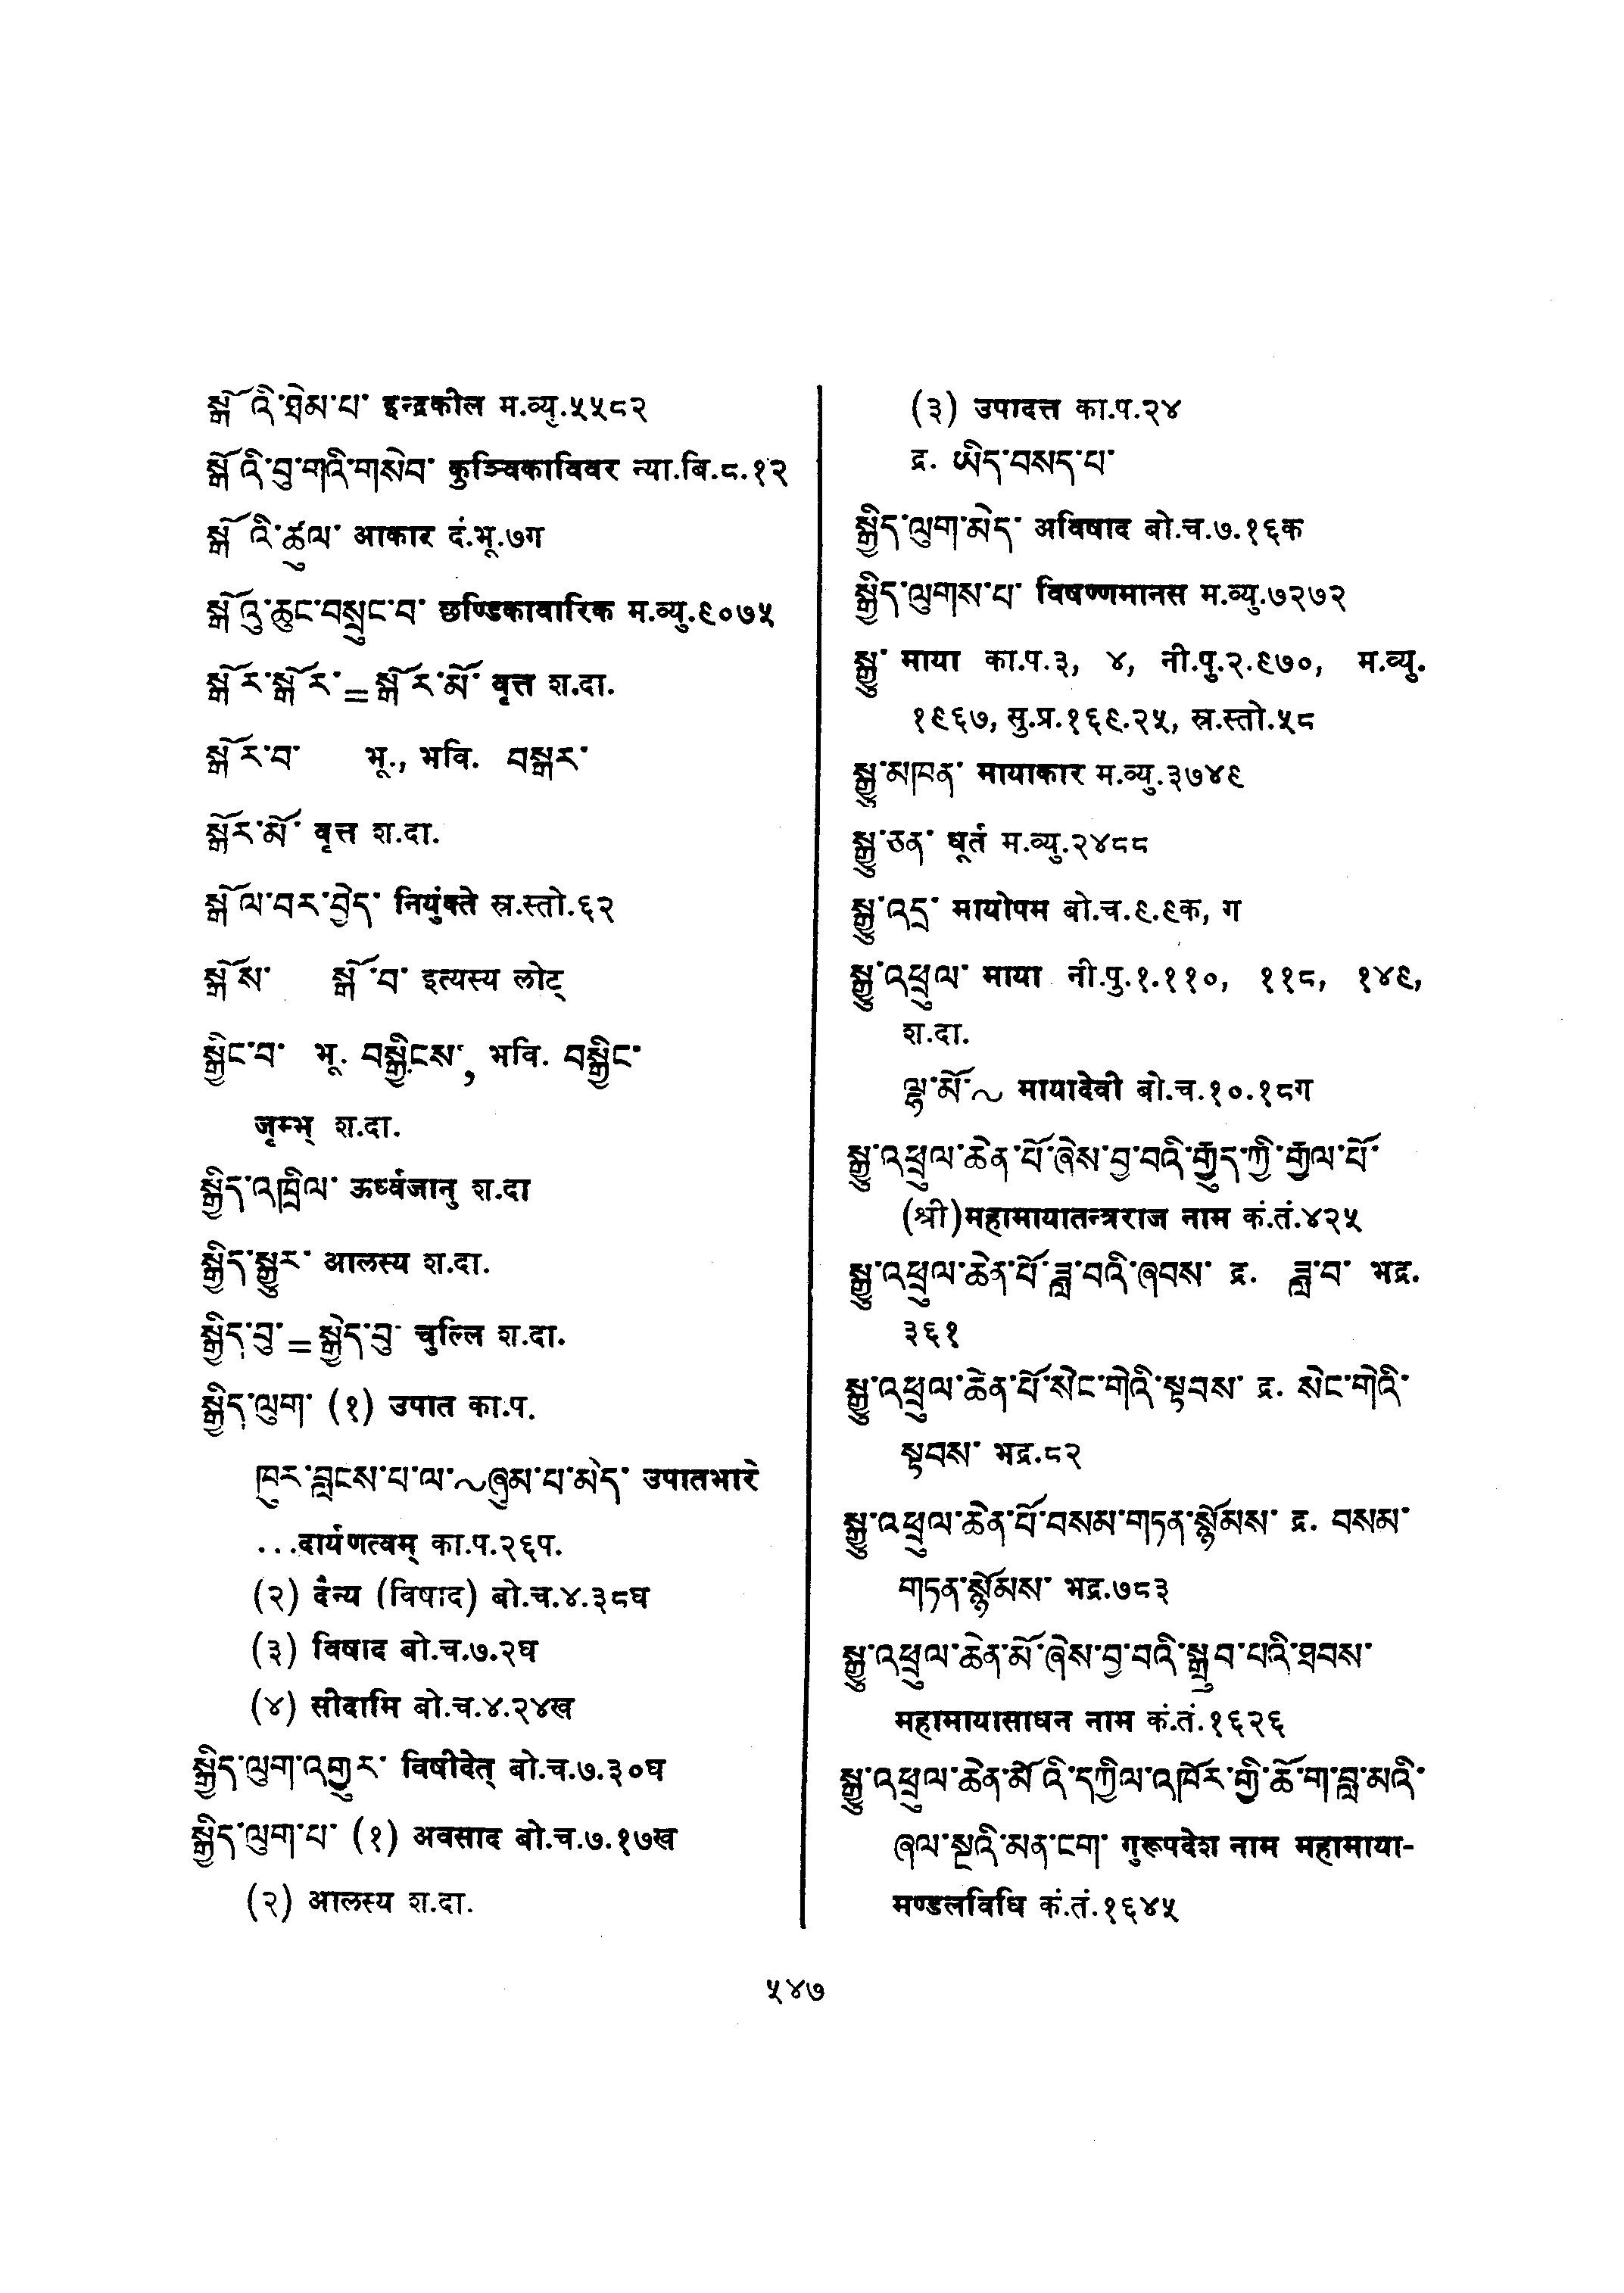 སྒོའི་ཐེམ་པ་ इन्द्रकील म.व्यु.५५८२
སྒོའི་བུ་གའི་གསེབ་ कुञ्चिकाविवर न्या.बि.८.१२
སྒོའི་ཚུལ་ आकार दं.भू.७ग
སྒོའུ་ཆུང་བསྲུང་བ་ छण्डिकावारिक म.व्यु.९०७५
སྒོར་སྒོར་=སྒོར་མོ་ वृत्त श.दा.
སྒོར་བ་ भू., भवि. བསྒར་
སྒོར་མོ་ वृत्त श.दा.
སྒོལ་བར་བྱེད་ नियुंक्ते स्र.स्तो.६२
སྒོས་ སྒོ་བ་ इत्यस्य लोट्
སྒྱིང་བ་ भू. བསྒྱིངས་, भवि. བསྒྱིང་
जृम्भ् श.दा.
སྒྱིད་འཁྲིལ་ ऊर्ध्वजानु श.दा
སྒྱིད་སྒུར་ आलस्य श.दा.
སྒྱིད་བུ་=སྒྱེད་བུ་ चुल्लि श.दा.
སྒྱིད་ལུག་ (१) उपात का.प.
ཁུར་བླངས་པ་ལ་~ཞུམ་པ་མེད་ उपातभारे
...दार्यणत्वम् का.प.२६प.
(२) दैन्य (विषाद) बो.च.४.३८घ
(३) विषाद बो.च.७.२घ
(४) सीदामि बो.च.४.२४ख
སྒྱིད་ལུག་འགྱུར་ विषीदेत् बो.च.७.३०घ
སྒྱིད་ལུག་པ་ (१) अवसाद बो.च.७.१७ख
(२) आलस्य श.दा.
(३) उपादत्त का.प.२४
द्र. ཡིད་བསད་པ་
སྒྱིད་ལུག་མེད་ अविषाद बो.च.७.१६क
སྒྱིད་ལུགས་པ་ विषण्णमानस म.व्यु.७२७२
སྒྱུ་ माया का.प.३, ४, नी.पु.२.९७०, म.व्यु.
१९६७, सु.प्र.१६९.२५, स्र.स्तो.५८
སྒྱུ་མཁན་ मायाकार म.व्यु.३७४९
སྒྱུ་ཅན་ धूर्त म.व्यु.२४८८
སྒྱུ་འདྲ་ मायोपम बो.च.९.९क, ग
སྒྱུ་འཕྲུལ་ माया नी.पु.१.११०, ११८, १४९,
श.दा.
ལྷ་མོ་~ मायादेवी बो.च.१०.१८ग
སྒྱུ་འཕྲུལ་ཆེན་པོ་ཞེས་བྱ་བའི་རྒྱུད་ཀྱི་རྒྱལ་པོ་
(श्री)महामायातन्त्रराज नाम कं.तं.४२५
སྒྱུ་འཕྲུལ་ཆེན་པོ་ཟླ་བའི་ཞབས་ द्र. ཟླ་བ་ भद्र.
३६१
སྒྱུ་འཕྲུལ་ཆེན་པོ་སེང་གེའི་སྟབས་ द्र. སེང་གེའི་
སྟབས་ भद्र.८२
སྒྱུ་འཕྲུལ་ཆེན་པོ་བསམ་གཏན་སྙོམས་ द्र. བསམ་
གཏན་སྙོམས་ भद्र.७८३
སྒྱུ་འཕྲུལ་ཆེན་མོ་ཞེས་བྱ་བའི་སྒྲུབ་པའི་ཐབས་
महामायासाधन नाम कं.तं.१६२६
སྒྱུ་འཕྲུལ་ཆེན་མོའི་དཀྱིལ་འཁོར་གྱི་ཆོ་ག་བླ་མའི་
ཞལ་སྔའི་མན་ངག་ गुरूपदेश नाम महामाया-
मण्डलविधि कं.तं.१६४५
५४७